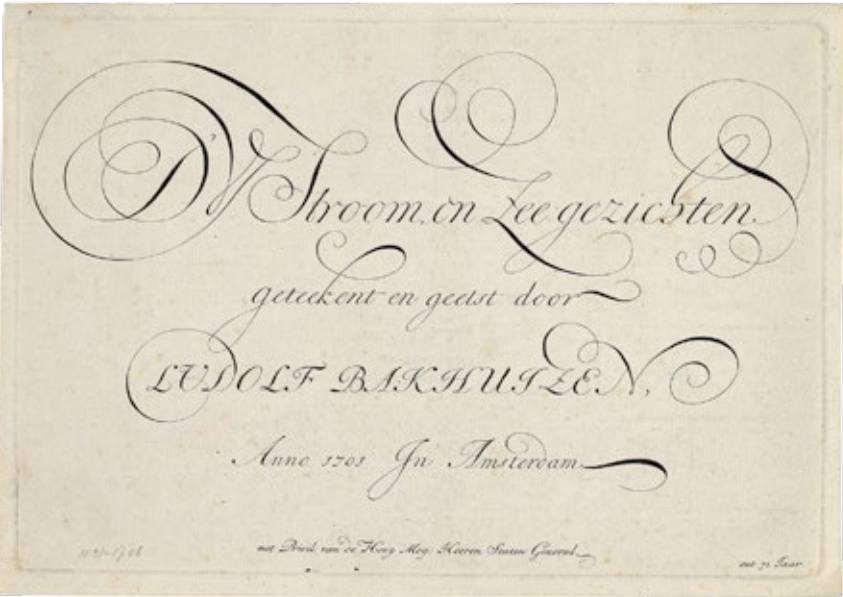 D'Y Stroom, en Zee gezichten
geteekent en geëtst door
LUDOLF BAKHUIZEN,
Anno 1701 In Amsterdam
met Privil. van de Hoog Mog: Heeren Staten Generael
out 71 Jaar